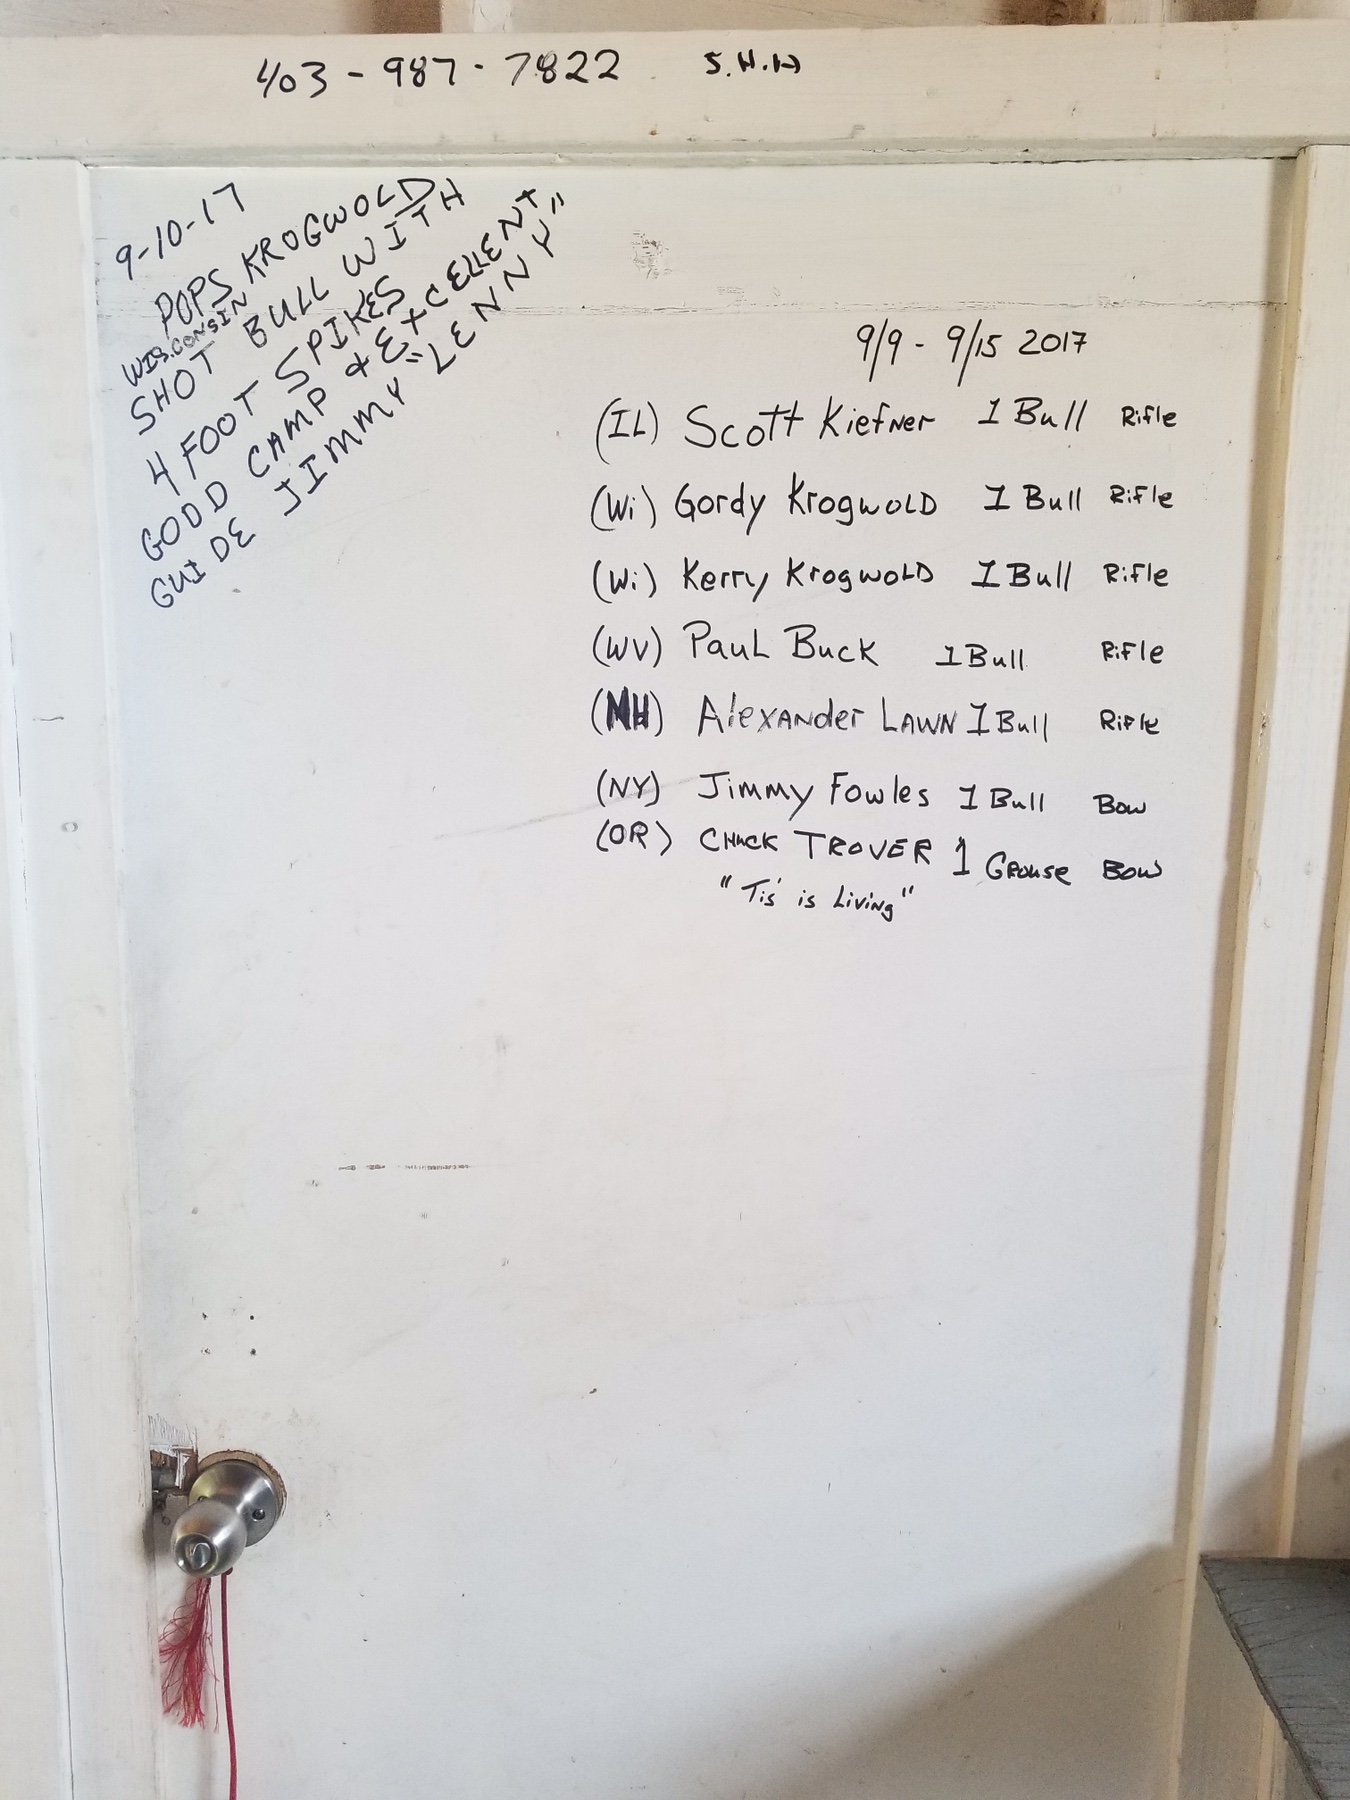 403-987-7822 S.H.H
9-10-17
POPS KROGWOLD
WISCONSIN
SHOT BULL WITH
4 FOOT SPIKES
GOOD CAMP & EXCELLENT
GUIDE JIMMY "LENNY"
9/9 - 9/15 2017
(IL) Scott Kiefner 1 Bull Rifle
(Wi) Gordy KrogwoLD 1 Bull Rifle
(Wi) Kerry KrogwoLD 1 Bull Rifle
(WV) PauL Buck 1 Bull Rifle
(MH) Alexander LAWN 1 Bull Rifle
(NY) Jimmy Fowles 1 Bull Bow
(OR) CHuCK TROVER 1 Grouse Bow
"Tis' is Living"